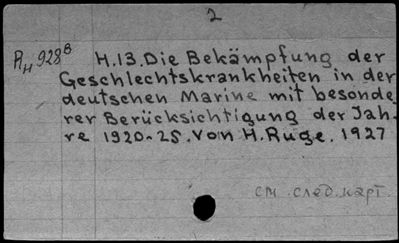 2
RH 928⁸ H.13. Die Bekämpfung der
Geschlechtskrankheiten in der
deutschen Marine mit besonde
rer Berücksichtigung der Jah-
re 1920-25. Von H. Ruge. 1927
см. след. карт.